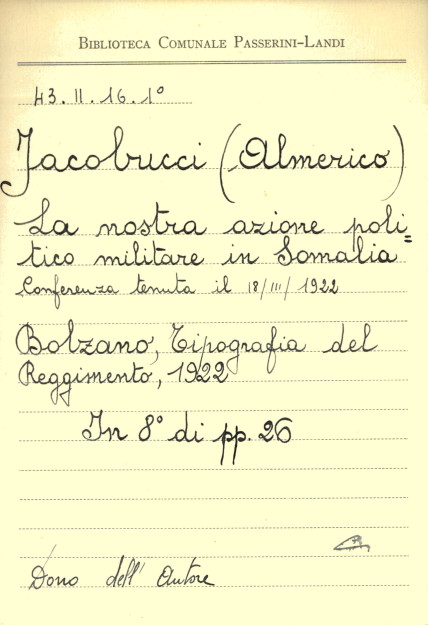 BIBLIOTECA COMUNALE PASSERINI-LANDI
43.II.16.1°
Jacobucci (Almerico)
La nostra azione poli=
tico militare in Somalia
Conferenza tenuta il 18/III/1922
Bolzano, Tipografia del
Reggimento, 1922
In 8° di pp. 26
Dono dell'Autore